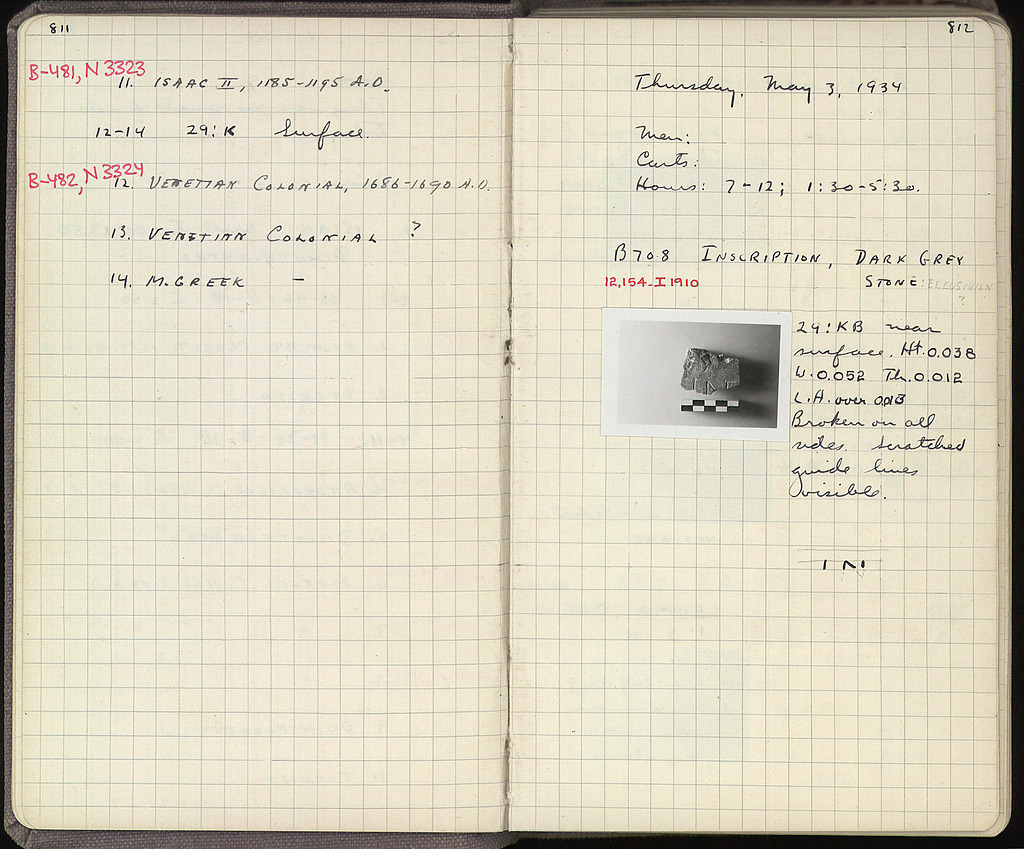 811
B-481, N 3323
11. ISAAC II, 1185-1195 A.D.
12-14 29:K Surface.
B-482, N 3324
12. VENETIAN COLONIAL, 1686-1690 A.D.
13. VENETIAN COLONIAL ?
14. M. GREEK —
812
Thursday, May 3, 1934
Men:
Carts:
Hours: 7-12; 1:30-5:30.
B708 INSCRIPTION, DARK GREY
12,154-I 1910
STONE: ELEUSINIAN
?
29:KB near
surface. Ht. 0.038
W. 0.052 Th. 0.012
L.H. over 0.013
Broken on all
sides. Scratched
guide lines
visible.